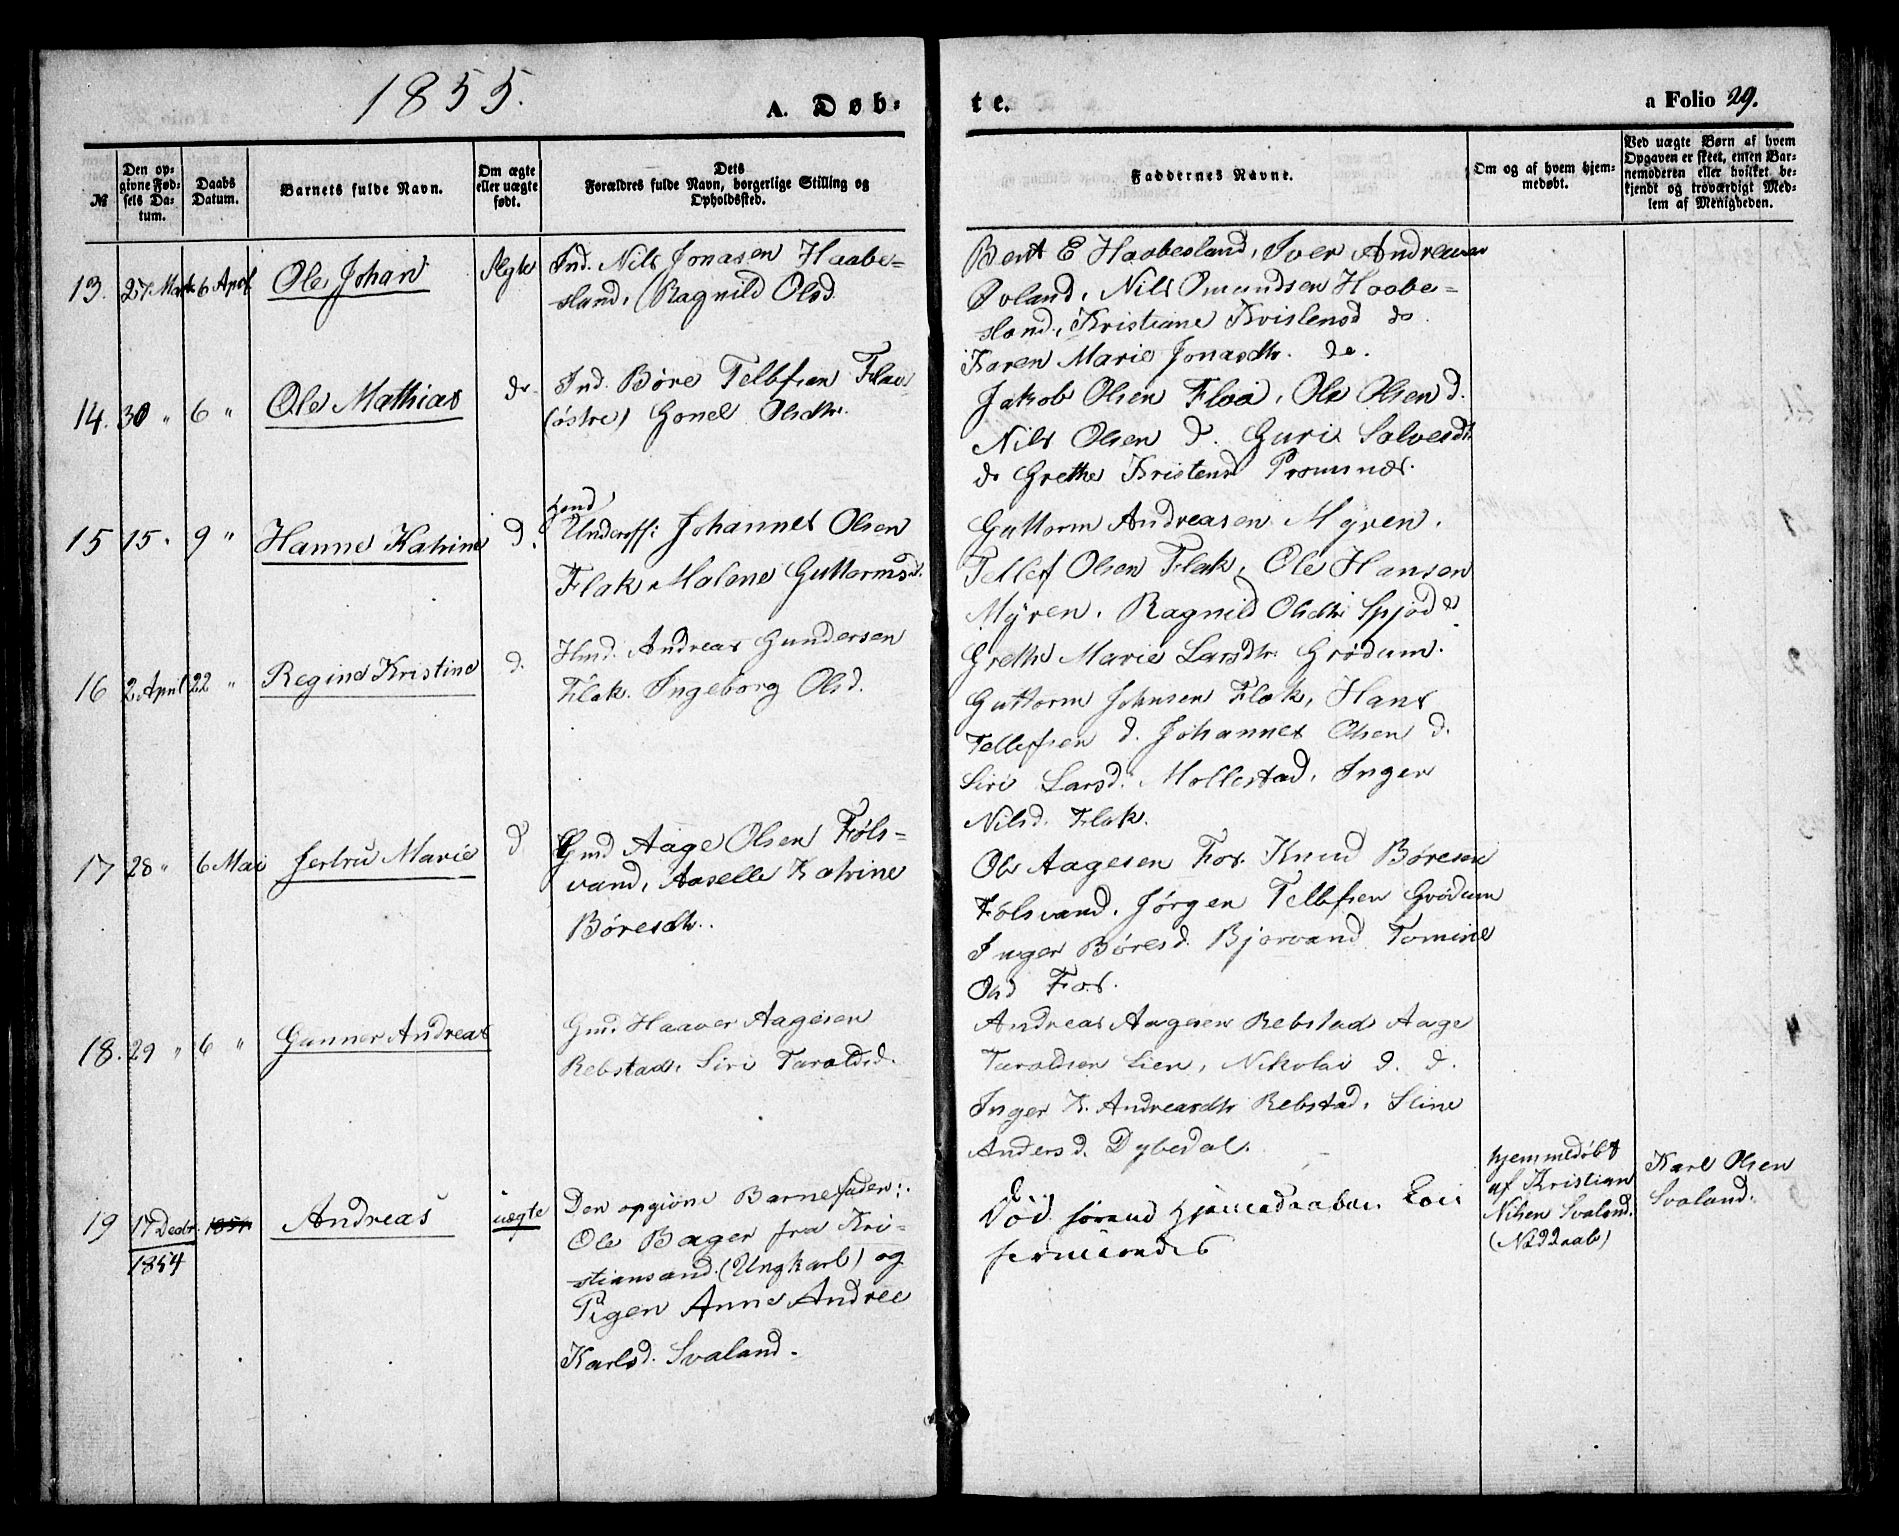 1855.
A. Døb-
te.
a Folio 29.
№
Den op-
givne Fød-
sels Da-
tum.
Daabs
Datum.
Barnets fulde Navn.
Om ægte
eller uægte
født.
Dets
Forældres fulde Navn, borgerlige Stilling og
Opholdssted.
Faddernes Navne.
Om og af hvem hjem-
medøbt.
Ved uægte Børn af hvem
Opgaven er skeet, enten Bar-
nemoderen eller hvilket be-
kjendt og troværdigt Med-
lem af Menigheden.
13. 27 Marts 6 April Ole Johan Ægte
Ind. Nils Jonasen Haabe-
sland, Ragnild Olsd.
Bent E Haabesland, Iver Andreasen
Øvland, Nils Omundsen Haabe-
sland, Kristiane Kvislensd do.
Karen Marie Jonasdtr. do.
14. 30 " 6 " Ole Mathias do.
Ind. Børe Tellefsen Flaa
(østre) Gonel Olsdtr.
Jakob Olsen Flaa, Ole Olsen d.
Nils Olsen d. Guri Salvesdt.
do Grethe Kristensd
15 15. 9 " Hanne Katrine d.
Lend
Underoff: Johannes Olsen
Flak Malene Guttormsd.
Guttorm Andreasen Myren.
Tellef Olsen Flak, Ole Hansen
Myren. Ragnild Olsdtr
Grethe Marie Larsdtr Grødum.
16 2. April 22 " Regine Kristine d.
Hmd. Andreas Gundersen
Flak. Ingeborg Olsd.
Guttorm Johnsen Flak, Hans
Tellefsen d. Johannes Olsen d.
Siri Larsd. Mollestad, Inger
Nilsd. Flak.
17 28 " 6 Mai Jertru Marie d
Gmd Aage Olsen Føls-
vand, Aaselle Katrine
Børesdtr.
Ole Aagesen Fos. Knud Børesen
Følsvand. Jørgen Tellefsen Grødum
Inger Børesd. Bjorvand Tomine
Olsd Fos.
18. 29 " 6 " Gunner Andreas
Gmd. Haaver Aagesen
Rebstad, Siri Taraldsd.
Andreas Aagesen Rebstad Aage
Taraldsen Lien, Nikolai d. d.
Inger K. Andreasdtr Rebstad, Stine
Andersd. Dybedal.
19 17 Decbr.
1854
1854
Andreas uægte
Den opgivne Barnefader:
Ole Bager fra Kri-
stiansand. (Ungkarl) og
Pigen Anne Andree
Karlsd. Svaland.
Død
hjemmedøbt
af Kristian
Nilsen Svaland.
(Nøddaab)
Karl Olsen
Svaland.